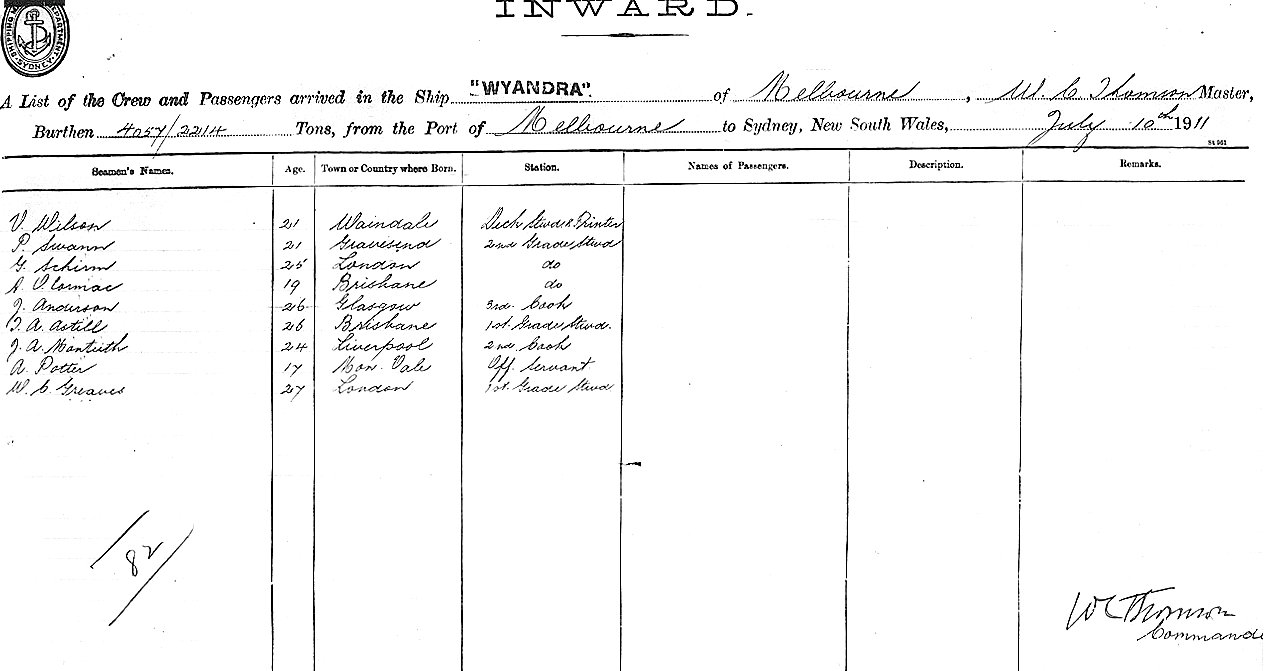 INWARD.
SHIPPING DEPARTMENT. SYDNEY.
A List of the Crew and Passengers arrived in the Ship "WYANDRA". of Melbourne, W. C Thomson Master,
Burthen 4057/2214 Tons, from the Port of Melbourne to Sydney, New South Wales, July 10th 1911
St 961
Seamen's Names. Age. Town or Country where Born. Station. Names of Passengers. Description. Remarks.
V. Wilson 21 Waindale Deck Stwd & Printer
P. Swann 21 Gravesend 2nd Grade Stwd
G. Schirm 25 London do
19 Brisbane do
J. Anderson 26 Glasgow 3rd. Cook
A. Astill 26 Brisbane 1st. Grade Stwd.
J. A. Montieth 24 Liverpool 2nd Cook
A. Potter 17 Mon. Vale Off. Servant
W. C. Greaves 27 London 1st. Grade Stwd
82
WC Thomson